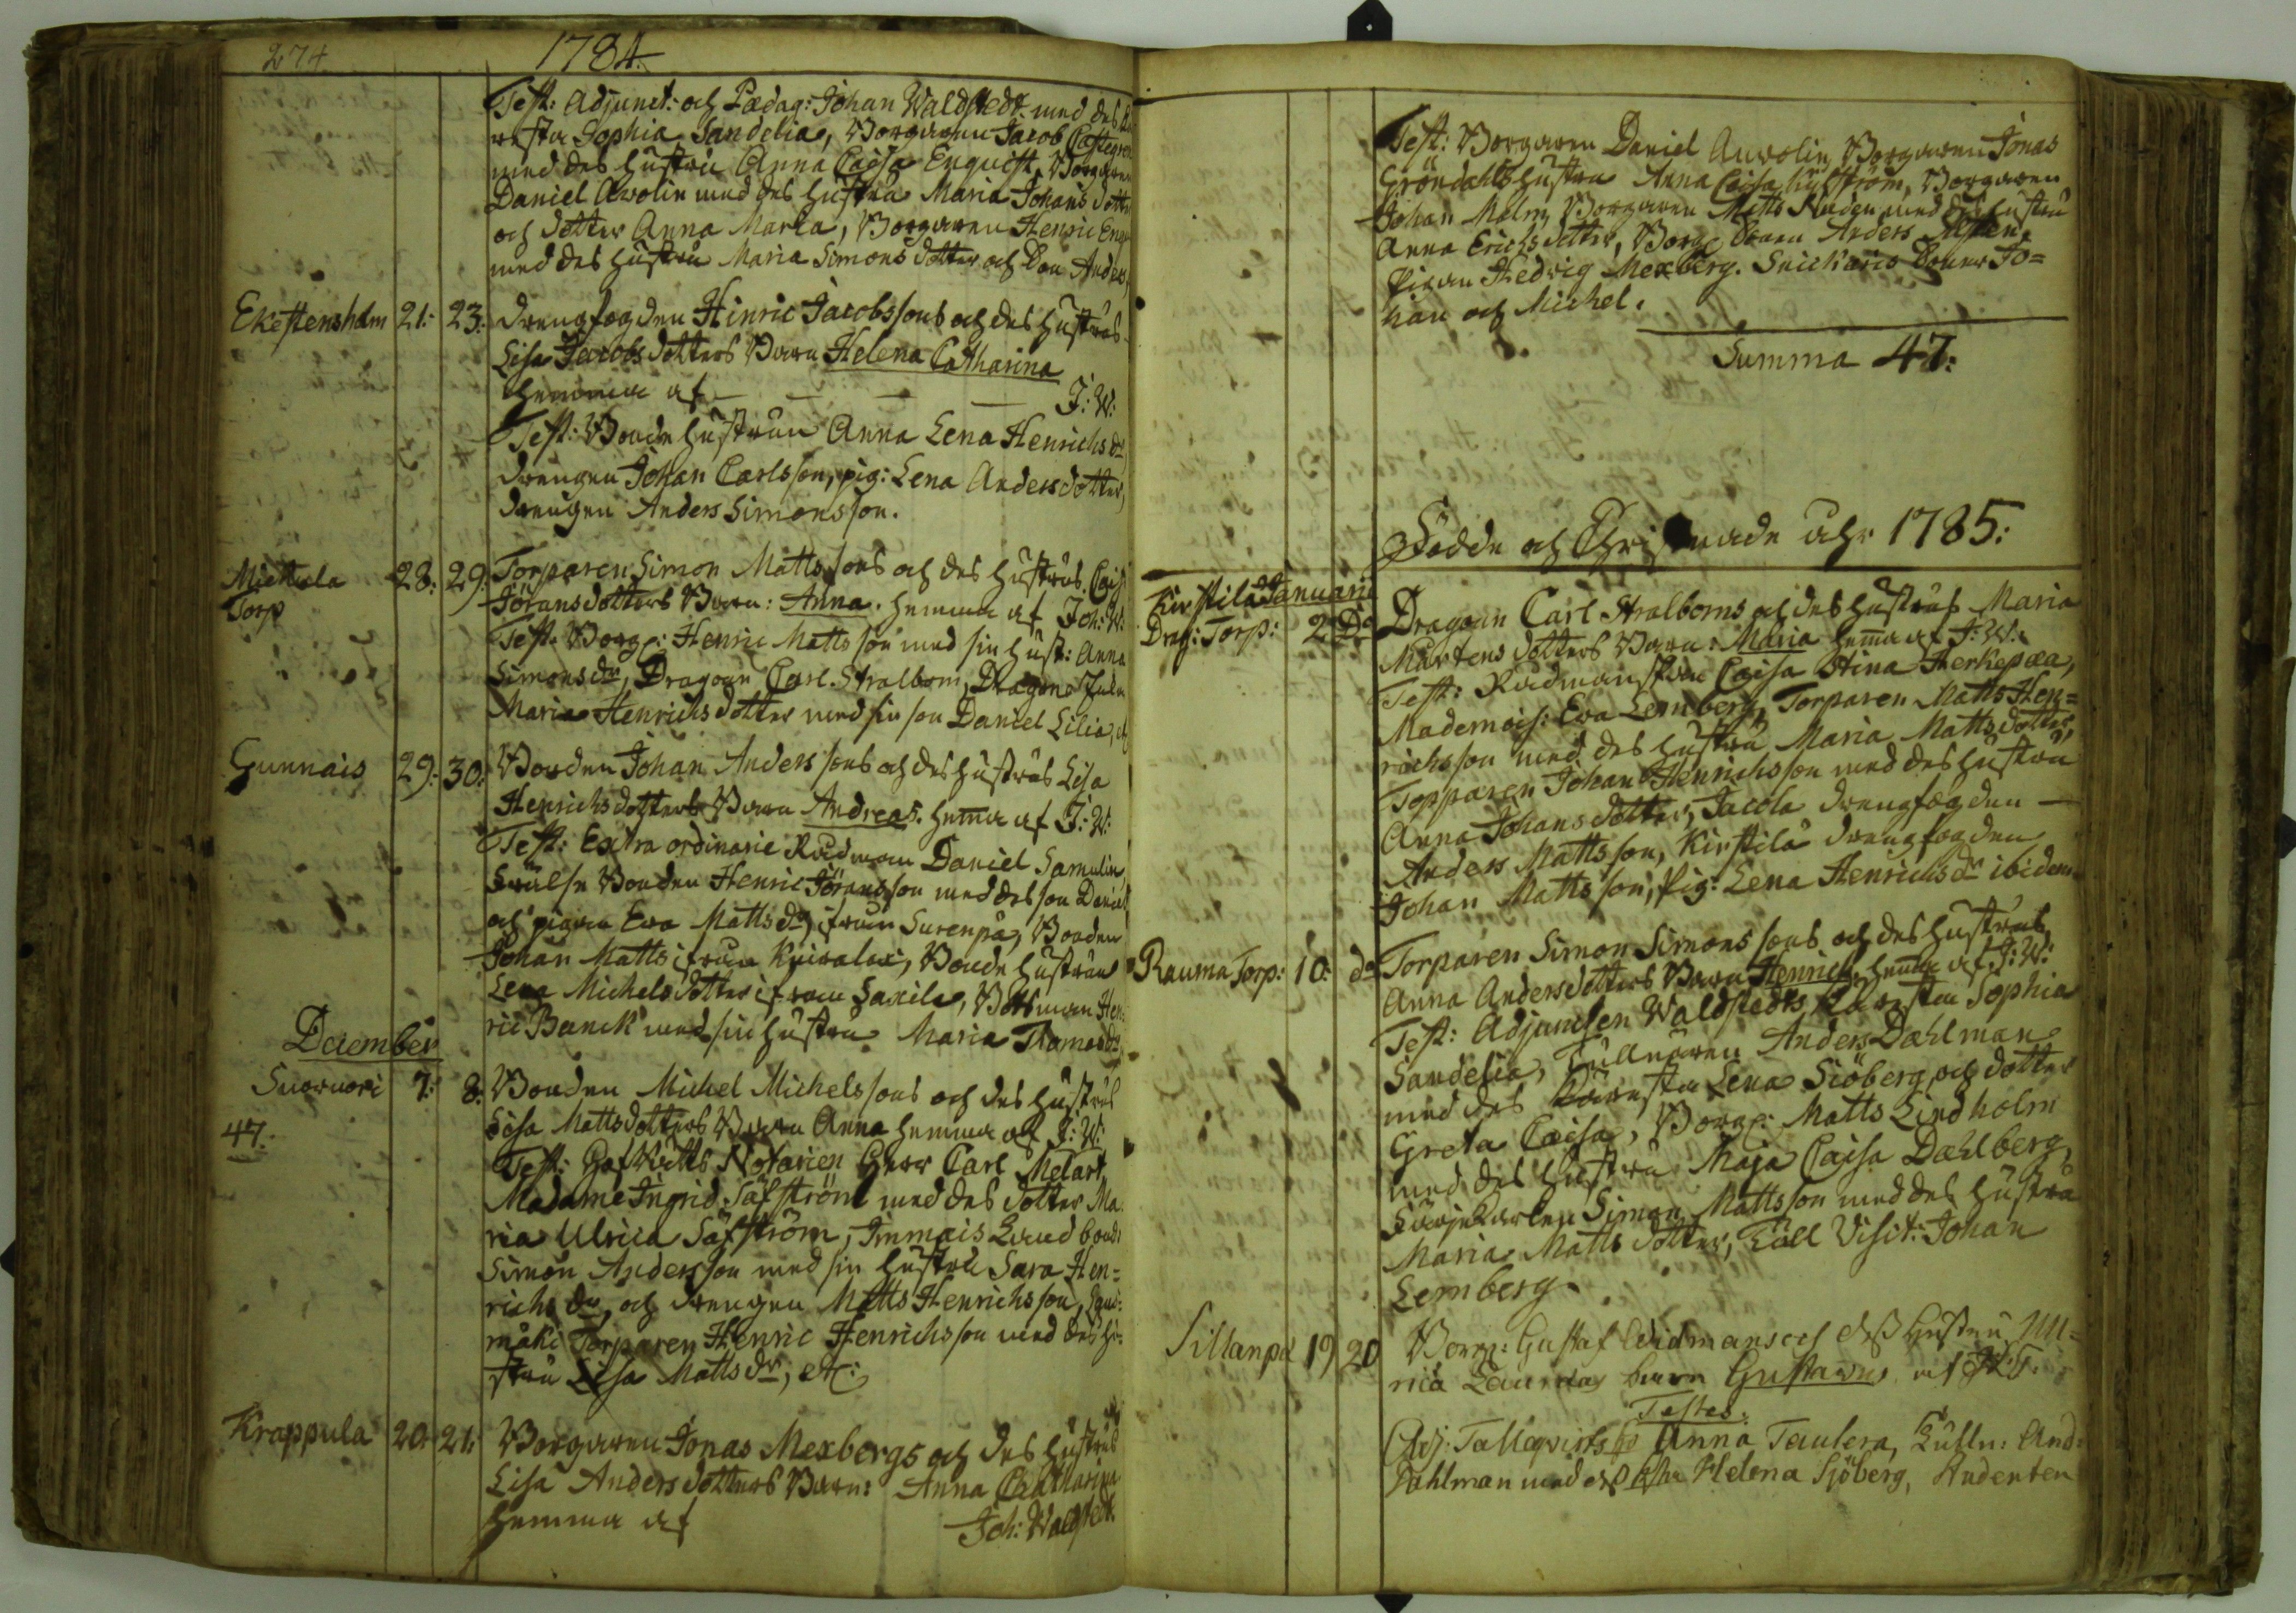 274 1784.
Test: Adjunct: och Pædag: Johan Waldstedt med des
resta Sophia Sandelia, Borgaren Jacob Castegren
med des hustru Anna Caisa Enquist, Borgaren
Daniel Awolin med des hustru Maria Johansdotter
och dotter Anna Maria, Borgaren Henric
med des hustru Maria Simonsdotter och Son Anders
Ekestensholm 21: 23: Drengfogden Hinric Jacobssons och des hustrus
Lisa Jacobsdotters Barn Helena Catharina
hemma af — — — — J: W:
Test: Bonde hustrun Anna Lena Henrichs dr
drengen Johan Carlsson, pig: Lena Andersdotter,
drengen Anders Simonsson.
Mickola 28: 29: Torparen Simon Mattssons och des hustrus Caisa
Torp Göransdotters Barn: Anna. hemma af Joh: W:
Test. Borg: Henric Mattsson med sin hust: Anna
Simonsdr, Dragoun Carl Stralbom, Dragone
Maria Henrichsdotter med sin son Daniel Lilia,
Gunnais 29: 30: Bonden Johan Anderssons och des hustrus Lisa
Henrichsdotters Barn Andreas. hema af J: W:
Test: Extra ordinarie Rådman Daniel Samulin,
Bonden Henric Göransson med des son Daniel
och pigan Eva Mattsdr ifrån Surenpä, Bonden
Johan Matts ifrån Knivalax, Bonde hustrun
Lena Michelsdotter ifrån Saxila, Båtsman Hen:
ric Banck med sin hustru Maria Thomasdr
December
Suorvori 7: 8: Bonden Michel Michelssons och des hustrus
Lisa Mattsdotters Barn Anna hemma af J: W:
47. Test: Hofrätts Notarien Herr Carl Melart,
Madame Ingrid Säfström med des dotter Ma
ria Ulrica Säfström, Immais Landbonde
Simon Andersson med sin hustru Sara Hen=
richs dr, och drengen Matts Henrichsson,
mäki Torparen Henric Henrichsson med des hu
stru Lisa Mattsdr, etc:
Krappula 20. 21: Borgaren Jonas Mexbergs och des hustrus
Lisa Andersdotters Barn: Anna Catharina
hemma af Joh: Waldstedt.
Test: Borgaren Daniel Auvolin, Borgaren Jonas
Gröndahls hustru Anna Caisa, Borgaren
Johan Malm, Borgaren Matts Ruden med des hustru
Anna Erichsdotter, Borg: Sonen Anders Alsten,
Pigan Hedvig Mexberg. Snickaris Söner Jo=
han och Michel.
Summa 47:
Födde och Christnade åhr 1785:
Kirstilä Januarii
Drag: Torp: 2. Do Dragoun Carl Stralboms och des hustrus Maria
Mårtens dotters Barn: Maria hema af J: W:
Test: Rådmanskan Caisa Stina Herkepæa,
Mademois: Eva Lemberg, Torparen Matts Hen=
richsson med des hustru Maria Mattsdotter,
Topparen Johan Henrichsson med des hustru
Anna Johansdotter, Jacola drengfogden —
Anders Mattsson, Kirstilä drengfogden
Johan Mattsson, Pig: Lena Henrichs dr ibidem
Rauma Torp: 10: do Torparen Simon Simonssons och des hustrus
Anna Andersdotters Barn Henrich. hema af J: W:
Test: Adjuncten Waldstedts Kæresta Sophia
Sandelia, Tullnären Anders Dahlman
med des Käresta Lena Siöberg och dotter
Greta Caisa, Borg: Matts Lindholm
med des hustru Maja Caisa Dahlberg,
Färjekarlen Simon Mattsson med des hustru
Maria Mattsdotter, Tull Visit: Johan
Lemberg.
Sillanpä 19 20 Borg: Gustaf Widmans och dess Hustru Ul=
rica barn Gustavus af
Testes.
Adj: Tallqvists Anna Taulera, Tulln: And:
Dahlman med dess Helena Sjöberg, Studenten